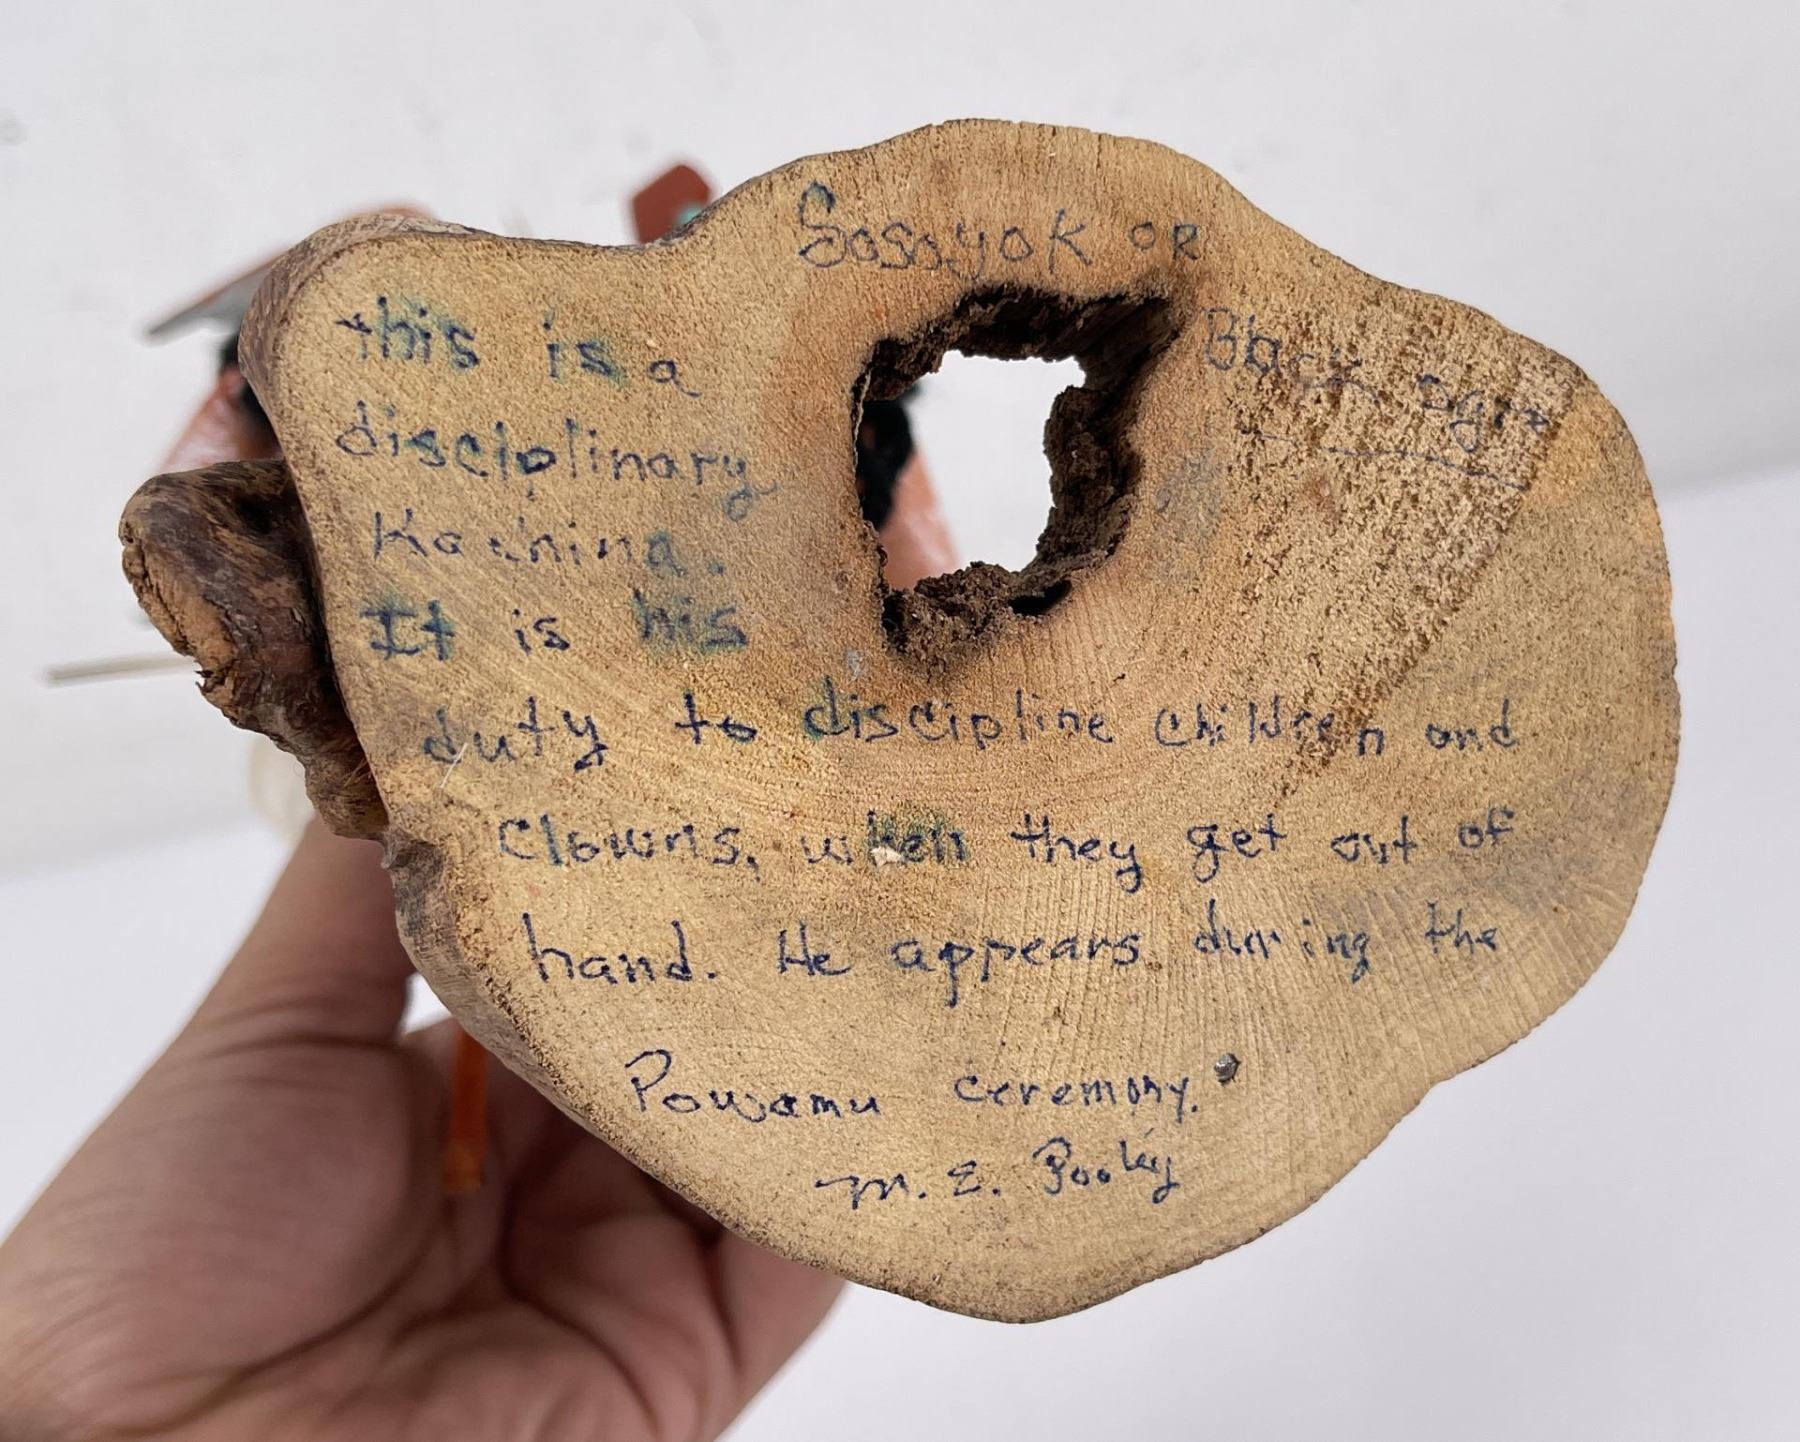 Sosoyok OR
Black ogre
this is a
disciplinary
Kachina.
It is his
duty to discipline children and
Clowns, when they get out of
hand. He appears during the
Powamu ceremony.
M. E. Pooley